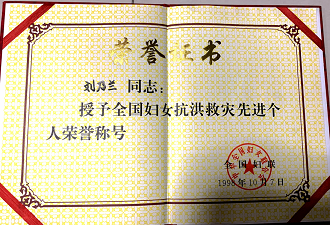 荣誉证书
刘乃兰 同志：
授予全国妇女抗洪救灾先进个
人荣誉称号
全国妇联
1998年10月7日